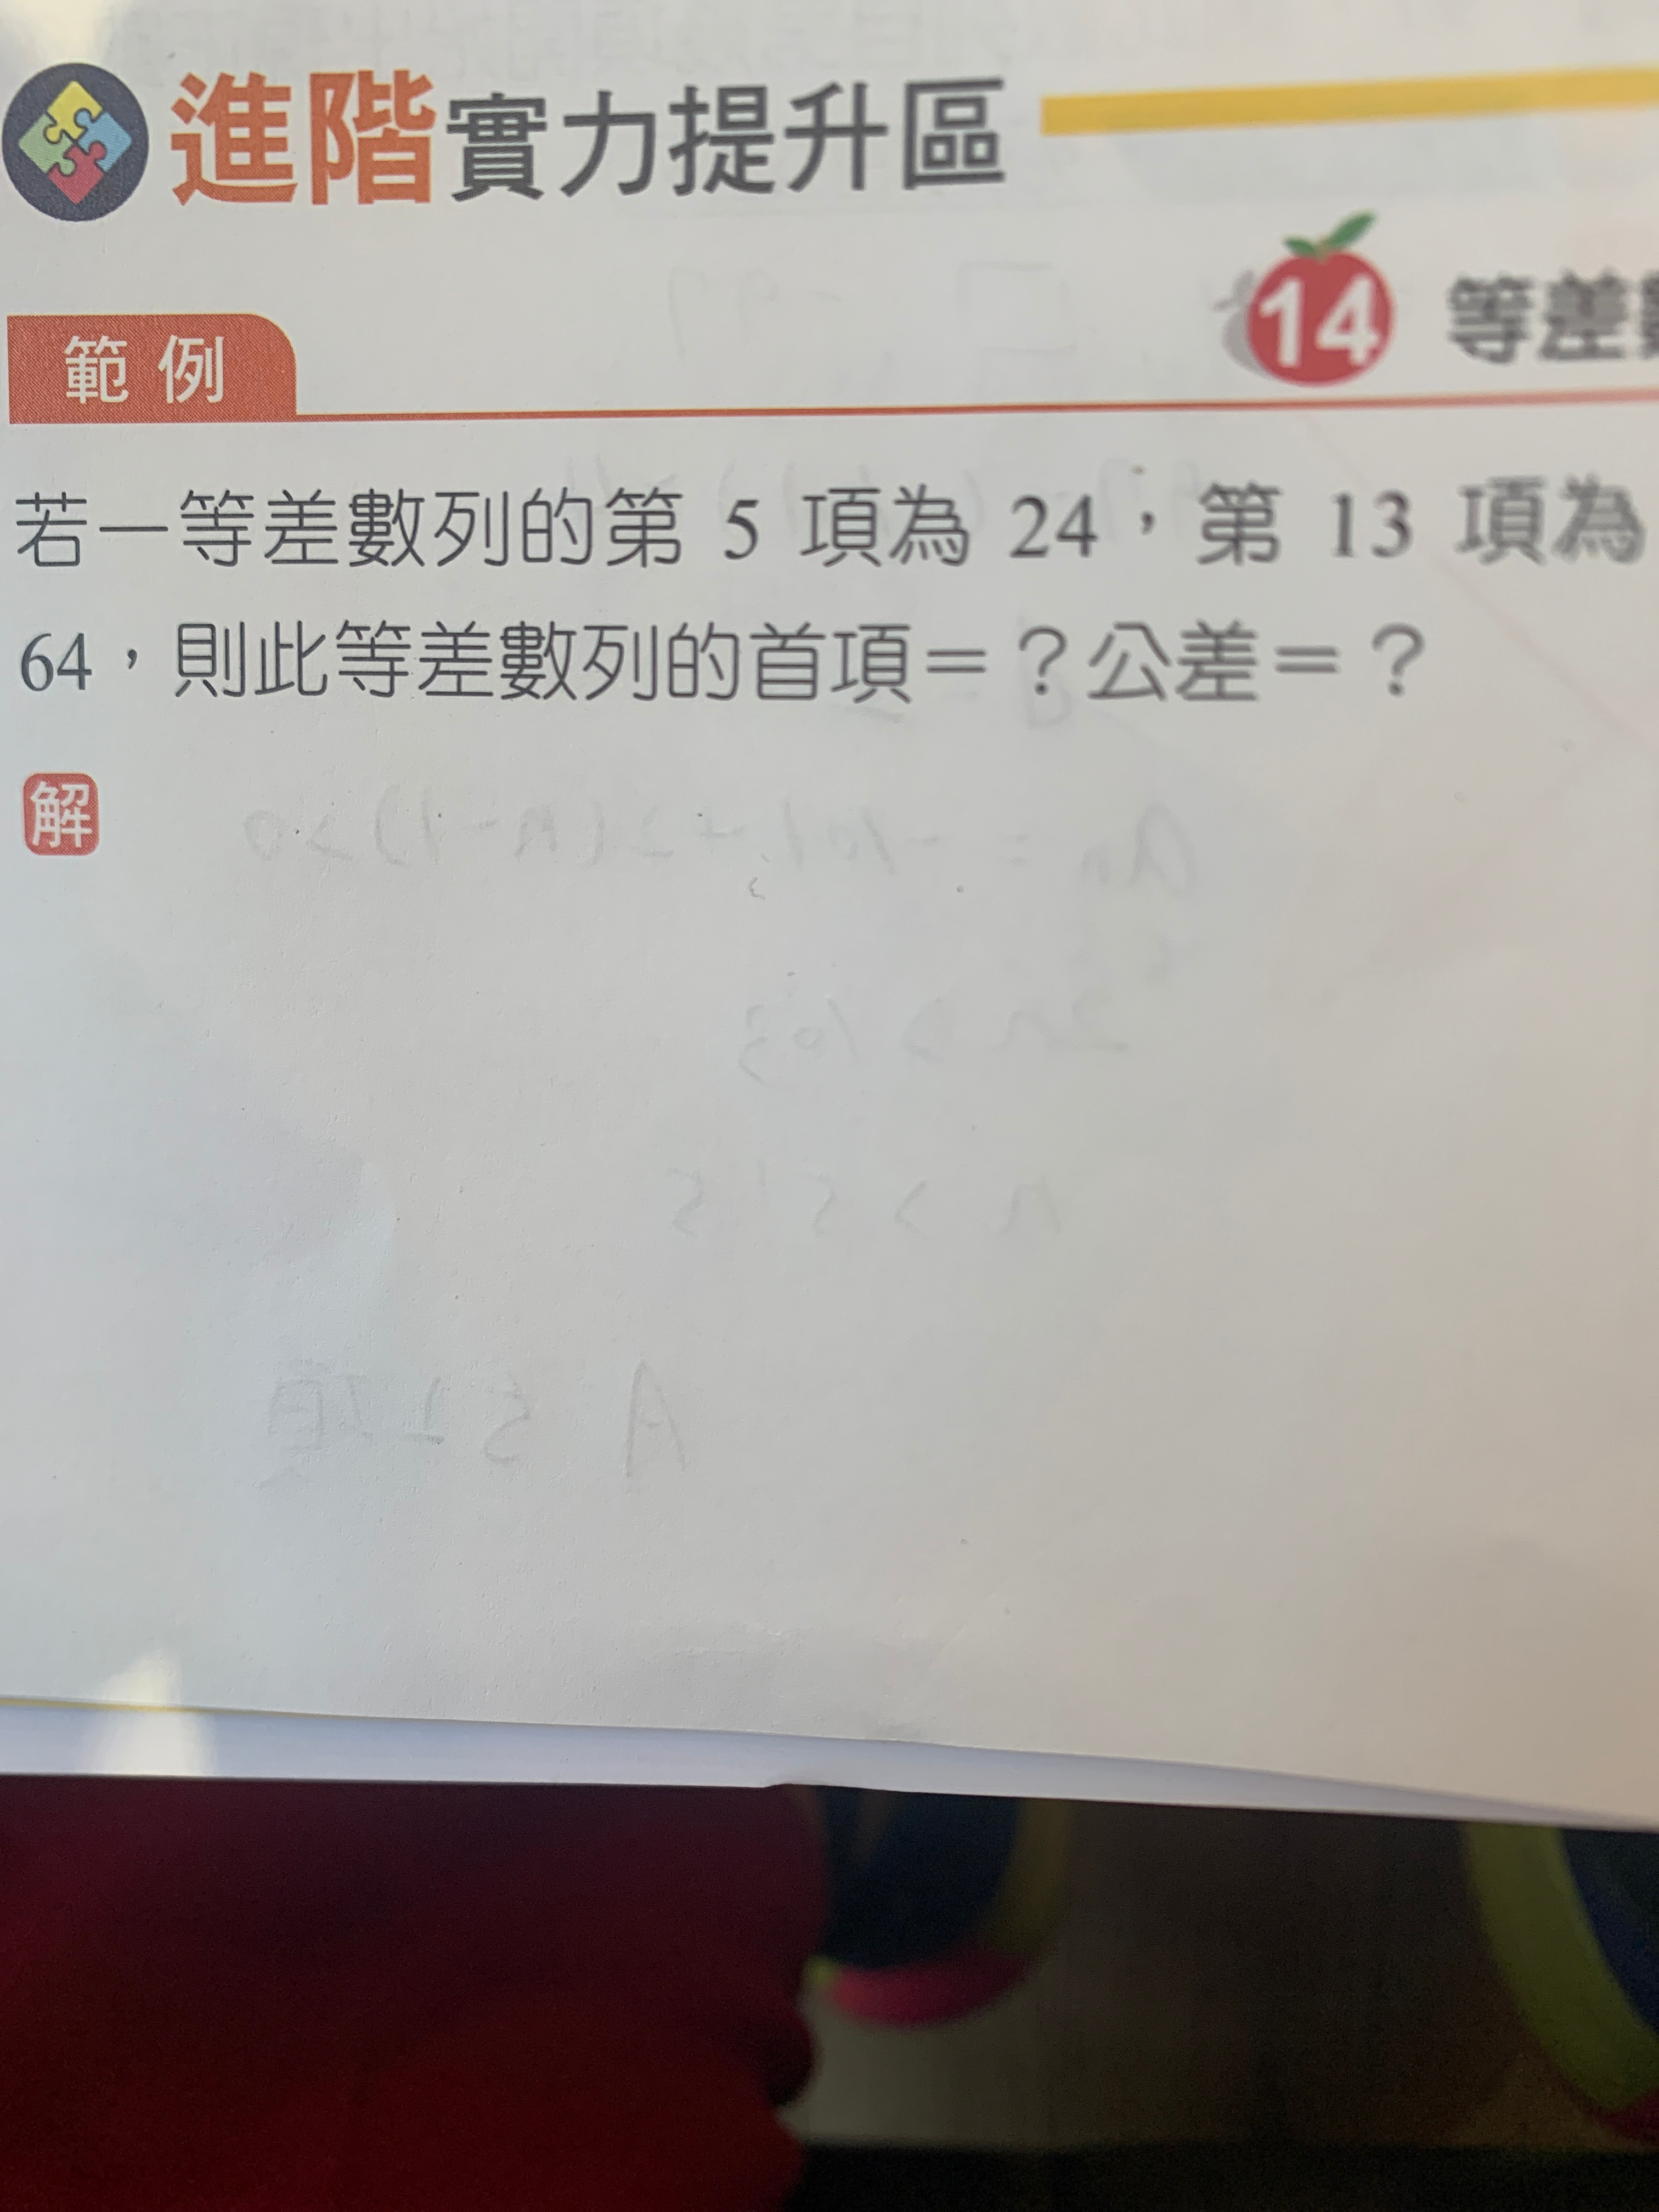 進階實力提升區
14 等差
範例
若一等差數列的第 5 項為 24，第 13 項為
64，則此等差數列的首項＝？公差＝？
解